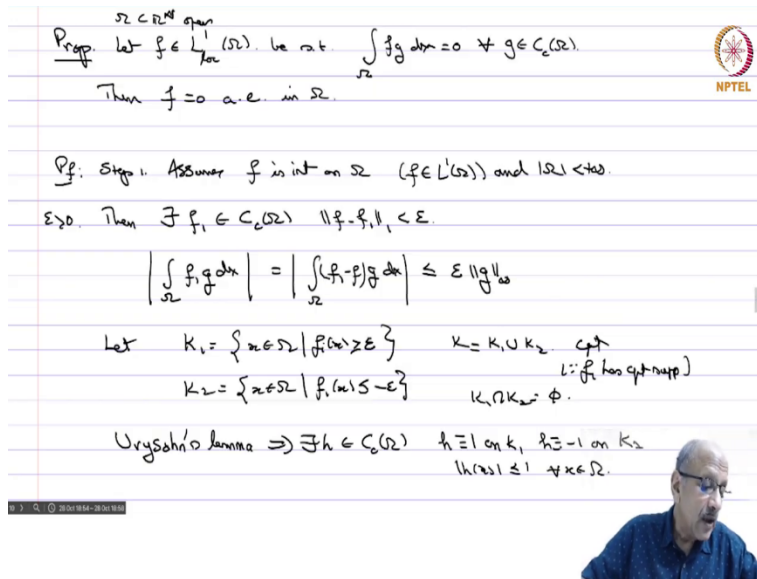 Ω ⊂ ℝᴺ open
Prop. Let f ∈ L¹loc (Ω). be s.t. ∫Ω fg dx = 0 ∀ g ∈ Cc(Ω).
NPTEL
Then f = 0 a.e. in Ω.
Pf: Step 1. Assume f is int on Ω (f ∈ L¹(Ω)) and |Ω| < +∞.
ε>0. Then ∃ f₁ ∈ Cc(Ω) ‖f-f₁‖₁ < ε.
| ∫Ω f₁ g dx | = | ∫Ω (f₁-f) g dx | ≤ ε ‖g‖∞
Let K₁ = { x ∈ Ω | f₁(x) ≥ ε } K = K₁ ∪ K₂. cpt
(∵ f₁ has cpt supp)
K₂ = { x ∈ Ω | f₁(x) ≤ -ε } K₁ ∩ K₂ = ∅.
Urysohn's lemma ⇒ ∃ h ∈ Cc(Ω) h ≡ 1 on K₁ h ≡ -1 on K₂
|h(x)| ≤ 1 ∀ x ∈ Ω.
28 Oct 18:54 - 28 Oct 18:58